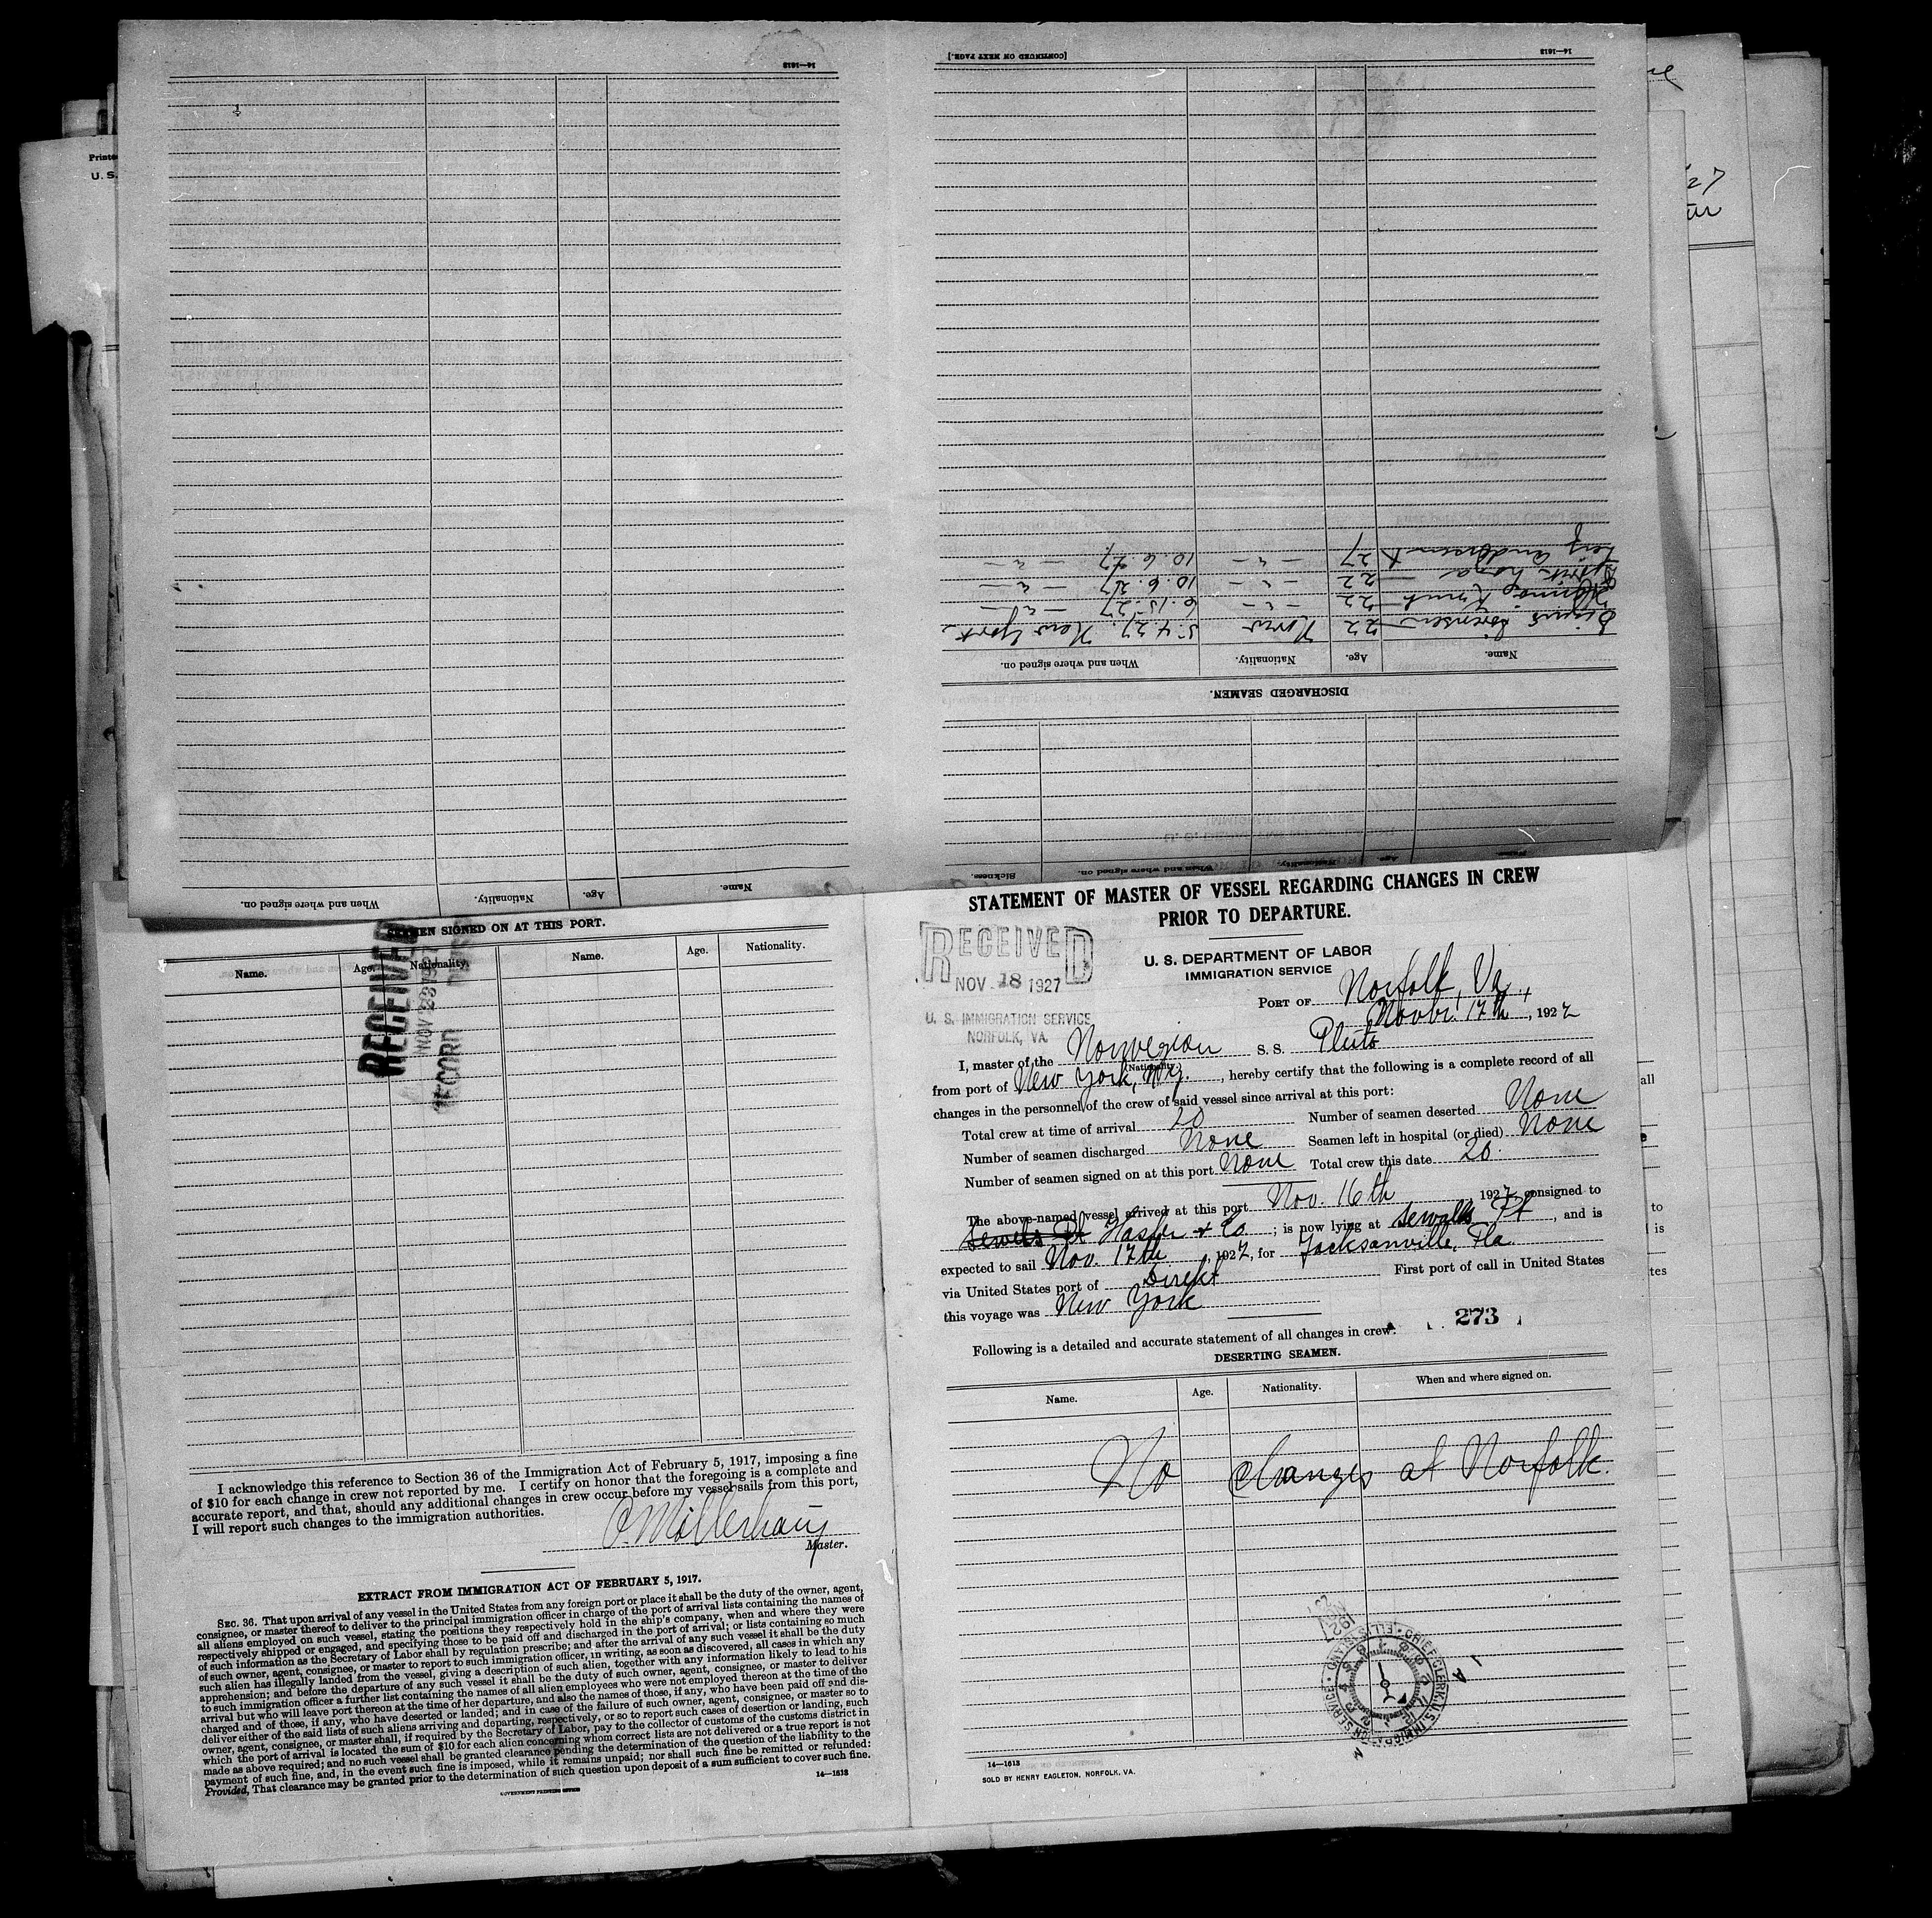 14—1613
[CONTINUED ON NEXT PAGE.]
14—1613
Printed
U. S.
27
DISCHARGED SEAMEN.
Name. Age. Nationality. When and where signed on.
Sigurd Sörensen 22 Norw 5.4.27. New York
22 — " — 6.15.27 — " —
22 — " — 10.6.27 — " —
27 — " — 10.6.27 — " —
Name. Age. Nationality. When and where signed on. Sickness.
Name. Age. Nationality. When and where signed on.
SEAMEN SIGNED ON AT THIS PORT.
Name. Age. Nationality. Name. Age. Nationality.
RECEIVED
NOV 28 1927
RECORD
I acknowledge this reference to Section 36 of the Immigration Act of February 5, 1917, imposing a fine
of $10 for each change in crew not reported by me. I certify on honor that the foregoing is a complete and
accurate report, and that, should any additional changes in crew occur before my vessel sails from this port,
I will report such changes to the immigration authorities.
Master.
EXTRACT FROM IMMIGRATION ACT OF FEBRUARY 5, 1917.
SEC. 36. That upon arrival of any vessel in the United States from any foreign port or place it shall be the duty of the owner, agent,
consignee, or master thereof to deliver to the principal immigration officer in charge of the port of arrival lists containing the names of
all aliens employed on such vessel, stating the positions they respectively hold in the ship's company, when and where they were
respectively shipped or engaged, and specifying those to be paid off and discharged in the port of arrival; or lists containing so much
of such information as the Secretary of Labor shall by regulation prescribe; and after the arrival of any such vessel it shall be the duty
of such owner, agent, consignee, or master to report to such immigration officer, in writing, as soon as discovered, all cases in which any
such alien has illegally landed from the vessel, giving a description of such alien, together with any information likely to lead to his
apprehension; and before the departure of any such vessel it shall be the duty of such owner, agent, consignee, or master to deliver
to such immigration officer a further list containing the names of all alien employees who were not employed thereon at the time of the
arrival but who will leave port thereon at the time of her departure, and also the names of those, if any, who have been paid off and dis-
charged and of those, if any, who have deserted or landed; and in case of the failure of such owner, agent, consignee, or master so to
deliver either of the said lists of such aliens arriving and departing, respectively, or so to report such cases of desertion or landing, such
owner, agent, consignee, or master shall, if required by the Secretary of Labor, pay to the collector of customs of the customs district in
which the port of arrival is located the sum of $10 for each alien concerning whom correct lists are not delivered or a true report is not
made as above required; and no such vessel shall be granted clearance pending the determination of the question of the liability to the
payment of such fine, and, in the event such fine is imposed, while it remains unpaid; nor shall such fine be remitted or refunded:
Provided, That clearance may be granted prior to the determination of such question upon deposit of a sum sufficient to cover such fine.
14—1613
GOVERNMENT PRINTING OFFICE
STATEMENT OF MASTER OF VESSEL REGARDING CHANGES IN CREW
PRIOR TO DEPARTURE.
RECEIVED
NOV 18 1927
U. S. IMMIGRATION SERVICE
NORFOLK, VA.
U. S. DEPARTMENT OF LABOR
IMMIGRATION SERVICE
PORT OF Norfolk, Va
Novbr. 17th, 1927
I, master of the Norwegian S. S. Pluto
(Nationality.)
from port of New York, N.Y., hereby certify that the following is a complete record of all
changes in the personnel of the crew of said vessel since arrival at this port:
Total crew at time of arrival 20 Number of seamen deserted None
Number of seamen discharged None Seamen left in hospital (or died) None
Number of seamen signed on at this port None Total crew this date 20.
The above-named vessel arrived at this port Nov. 16th, 1927, consigned to
Sewells Pt Hasler & Co; is now lying at Sewalls Pt, and is
expected to sail Nov. 17th, 1927, for Jacksonville, Fla.
via United States port of Direkt First port of call in United States
this voyage was New York
Following is a detailed and accurate statement of all changes in crew:
273
DESERTING SEAMEN.
Name. Age. Nationality. When and where signed on.
No changes at Norfolk.
CHIEF CLERK U.S. IMMIGRATION SERVICE · ELLIS ISLAND ·
14—1613
SOLD BY HENRY EAGLETON, NORFOLK, VA.
all
to
is